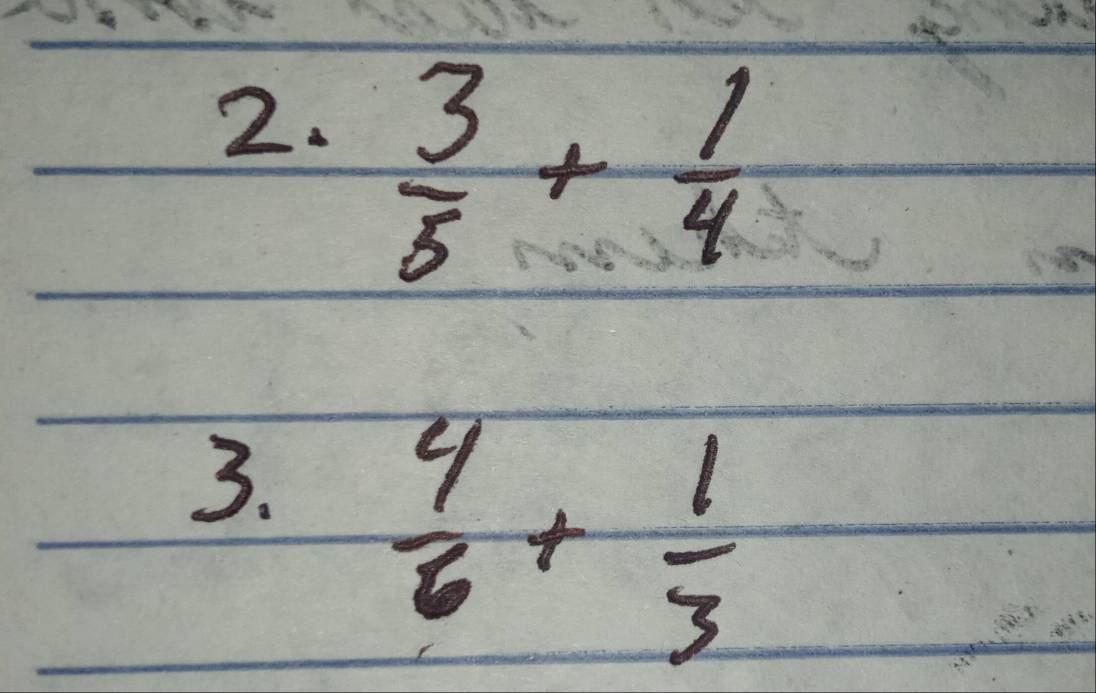 2. 3/5 + 1/4
3. 4/6 + 1/3